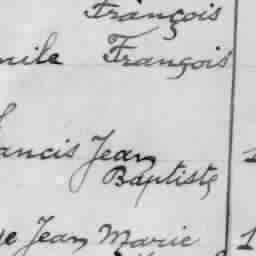 François
mile François
ancis Jean
Baptiste
Jean Marie